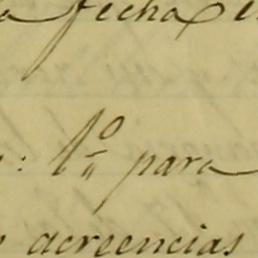 a fecha e
: 1º para
acreencias